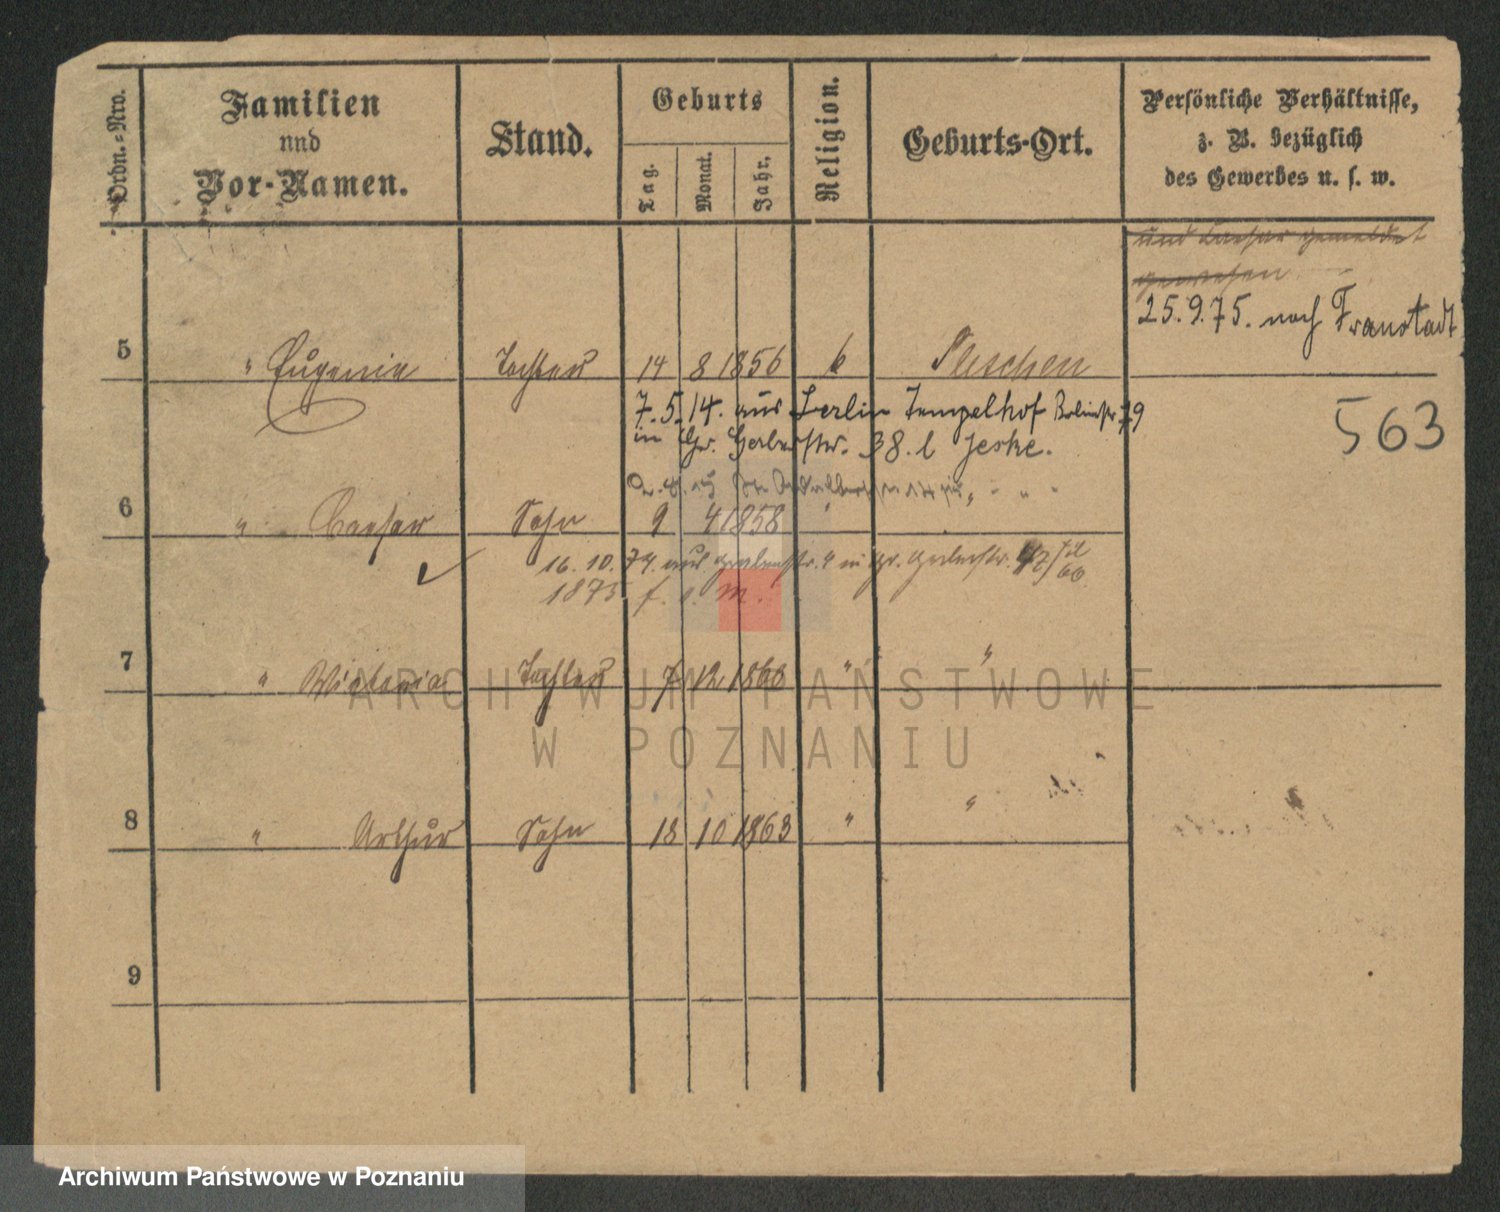 Ordn.-Nro.
Familien
und
Vor-Namen.
Stand.
Geburts
Tag.
Monat.
Jahr.
Religion.
Geburts-Ort.
Persönliche Verhältnisse,
z. B. bezüglich
des Gewerbes u. s. w.
und Caesar gemeldet
gewesen
25.9.75. nach Fraustadt
5 " Eugenie Tochter 14 8 1856 k Pleschen
7.5.14. aus Berlin Tempelhof 79
in Gr. Gerberstr. 38. l Jeske.
563
6 " Caesar Sohn 9 4 1858 "
16. 10. 74. aus Grabenstr. 4 in gr. Gerberstr.
1875 f. s. m.
7 " Wictoria Tochter 7 12 1860 " "
8 " Arthur Sohn 18 10 1863 " "
9
ARCHIWUM PAŃSTWOWE
W POZNANIU
Archiwum Państwowe w Poznaniu